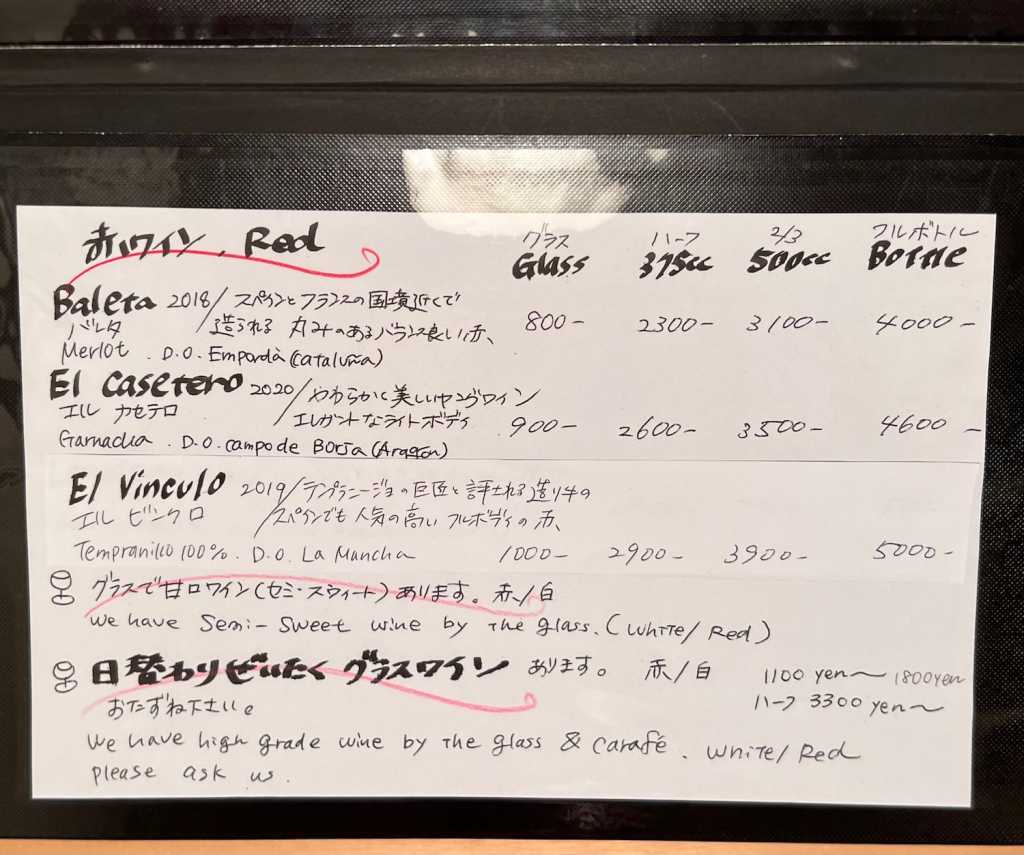 赤ワイン. Red グラス ハーフ 2/3 フルボトル
Glass 375cc 500cc Bottle
Baleta 2018/スペインとフランスの国境近くで
バレタ 造られる 丸みのあるバランス良い赤、 800- 2300- 3100- 4000-
Merlot . D.O. Empordà (Cataluña)
El Casetero 2020/やわらかく美しいヤングワイン
エル カセテロ エレガントなライトボディ 900- 2600- 3500- 4600-
Garnacha . D.O. Campo de Borja (Aragón)
El Vinculo 2019/テンプラニージョの巨匠と評される造り手の
エル ビンクロ スペインでも人気の高いフルボディの赤、
Tempranillo 100%. D.O. La Mancha 1000- 2900- 3900- 5000-
グラスで甘口ワイン(セミ・スウィート)あります。赤/白
We have Semi-Sweet wine by The glass. (White/Red)
日替わりぜいたくグラスワイン あります。 赤/白 1100 yen〜1800yen
おたずね下さい。 ハーフ 3300 yen〜
We have high grade wine by The glass & Carafé. White/Red
please ask us.